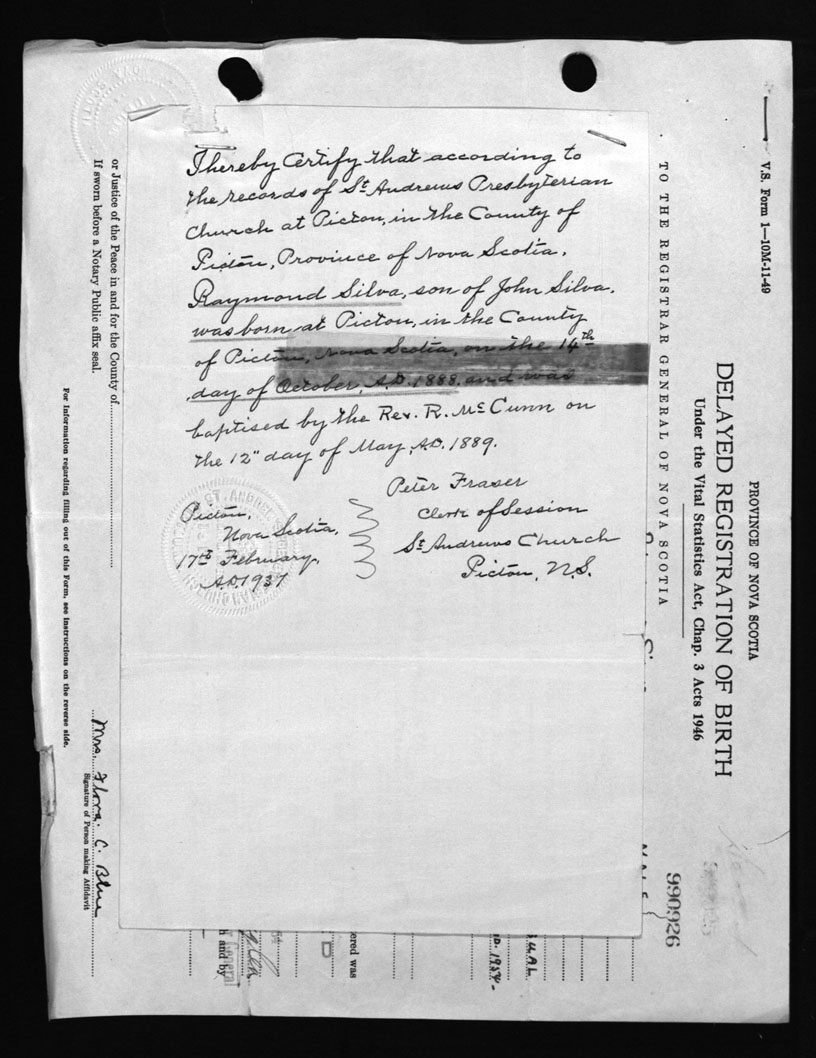 I hereby Certify that according to
the records of St. Andrews Presbyterian
Church at Pictou, in the County of
Pictou, Province of Nova Scotia,
Raymond Silva, son of John Silva.
was born at Pictou, in the County
of Pictou, Nova Scotia, on the 14th
day of October, A.D. 1888. and was
baptised by the Rev. R. McCunn on
the 12" day of May, A.D. 1889.
Peter Fraser
Clerk of Session
St. Andrews Church
Pictou, N.S.
Pictou,
Nova Scotia,
17th February,
A.D. 1937
V.S. Form 1—10M-11-49
PROVINCE OF NOVA SCOTIA
DELAYED REGISTRATION OF BIRTH
Under the Vital Statistics Act, Chap. 3 Acts 1946
TO THE REGISTRAR GENERAL OF NOVA SCOTIA
990926
D. 1954.
ered was
D
General
and by
or Justice of the Peace in and for the County of
If sworn before a Notary Public affix seal.
Mrs. Flora C. Blue
Signature of Person making Affidavit
For information regarding filling out of this Form, see instructions on the reverse side.